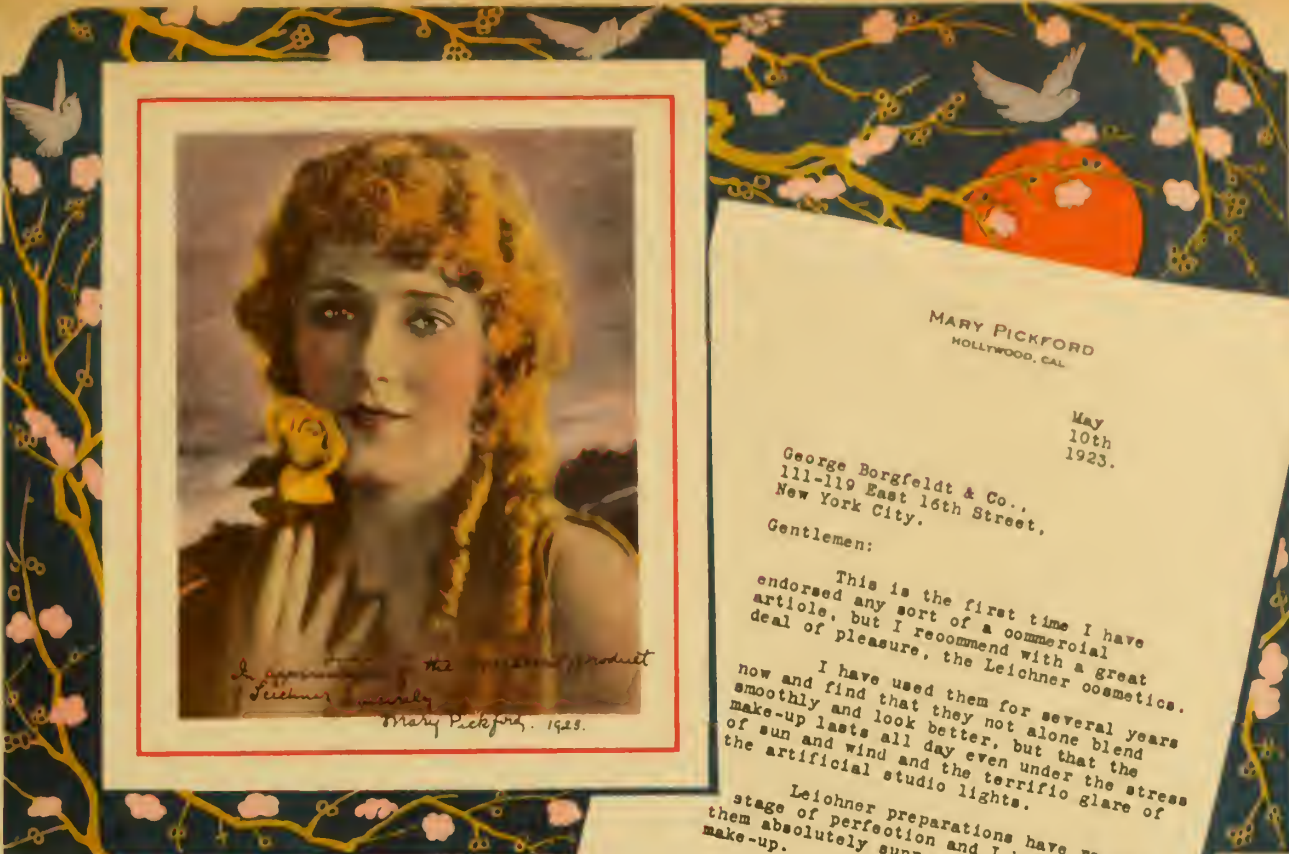 In the product
Leichner sincerely
Mary Pickford. 1923.
MARY PICKFORD
HOLLYWOOD, CAL.
May
10th
1923.
George Borgfeldt & Co.,
111-119 East 16th Street,
New York City.
Gentlemen:
This is the first time I have
endorsed any sort of a commercial
article, but I recommend with a great
deal of pleasure, the Leichner cosmetics.
I have used them for several years
now and find that they not alone blend
smoothly and look better, but that the
make-up lasts all day even under the stress
of sun and wind and the terrific glare of
the artificial studio lights.
Leichner preparations have
stage of perfection and I
them absolutely
make-up.